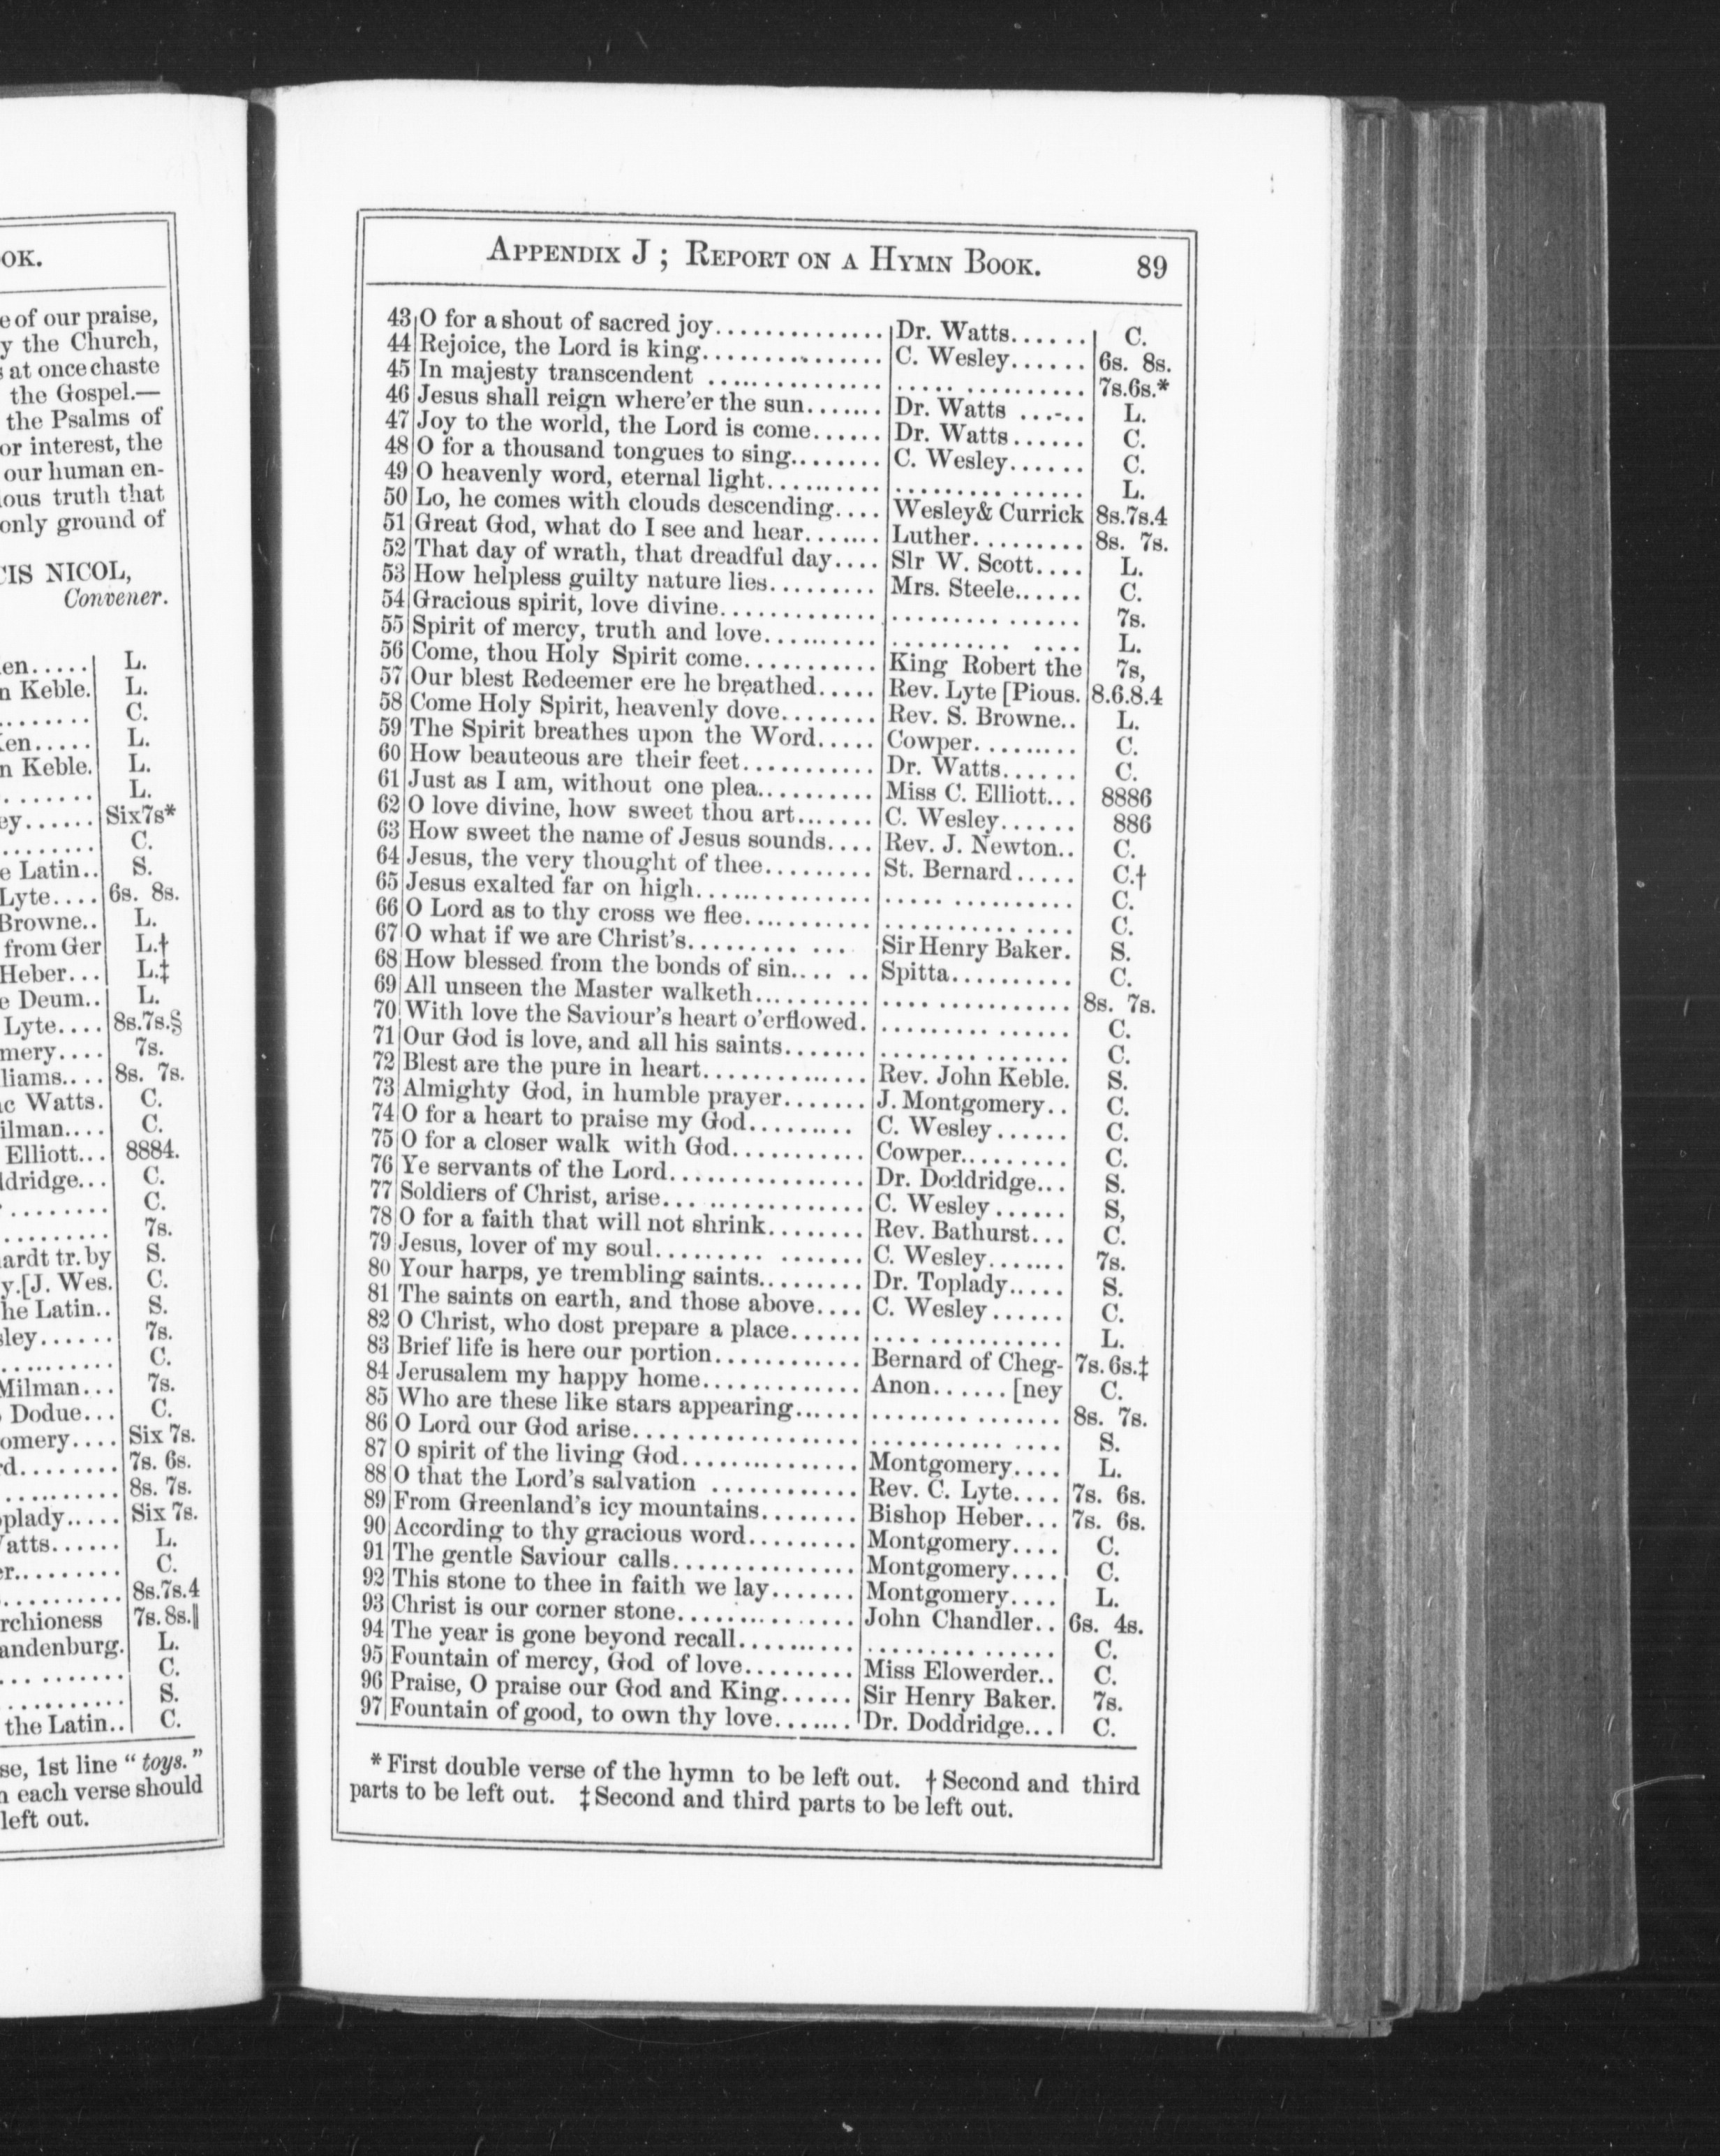 OK.
e of our praise,
y the Church,
s at once chaste
the Gospel.—
the Psalms of
or interest, the
our human en-
ious truth that
only ground of
CIS NICOL,
Convener.
en..... L.
n Keble. L.
........ C.
Ken..... L.
n Keble. L.
........ L.
ey...... Six7s*
........ C.
e Latin.. S.
Lyte.... 6s. 8s.
Browne.. L.
from Ger L.†
Heber... L.‡
e Deum.. L.
Lyte.... 8s.7s.§
mery.... 7s.
lliams.... 8s. 7s.
ac Watts. C.
ilman.... C.
Elliott... 8884.
ddridge... C.
........ C.
........ 7s.
ardt tr. by S.
y.[J. Wes. C.
he Latin.. S.
sley...... 7s.
........ C.
Milman... 7s.
Dodue... C.
omery.... Six 7s.
rd........ 7s. 6s.
........ 8s. 7s.
plady..... Six 7s.
atts...... L.
er......... C.
........ 8s.7s.4
rchioness 7s. 8s.‖
andenburg. L.
........ C.
........ S.
the Latin.. C.
se, 1st line “ toys.”
n each verse should
left out.
APPENDIX J ; REPORT ON A HYMN BOOK. 89
43 O for a shout of sacred joy............... Dr. Watts...... C.
44 Rejoice, the Lord is king................ C. Wesley...... 6s. 8s.
45 In majesty transcendent ............... ................ 7s.6s.*
46 Jesus shall reign where'er the sun....... Dr. Watts ...-.. L.
47 Joy to the world, the Lord is come...... Dr. Watts...... C.
48 O for a thousand tongues to sing........ C. Wesley...... C.
49 O heavenly word, eternal light.......... ............... L.
50 Lo, he comes with clouds descending.... Wesley& Currick 8s.7s.4
51 Great God, what do I see and hear....... Luther......... 8s. 7s.
52 That day of wrath, that dreadful day.... Slr W. Scott.... L.
53 How helpless guilty nature lies......... Mrs. Steele...... C.
54 Gracious spirit, love divine............. ............... 7s.
55 Spirit of mercy, truth and love.......... .......... .... L.
56 Come, thou Holy Spirit come........... King Robert the 7s,
57 Our blest Redeemer ere he breathed..... Rev. Lyte [Pious. 8.6.8.4
58 Come Holy Spirit, heavenly dove........ Rev. S. Browne.. L.
59 The Spirit breathes upon the Word..... Cowper......... C.
60 How beauteous are their feet........... Dr. Watts...... C.
61 Just as I am, without one plea.......... Miss C. Elliott... 8886
62 O love divine, how sweet thou art....... C. Wesley...... 886
63 How sweet the name of Jesus sounds.... Rev. J. Newton.. C.
64 Jesus, the very thought of thee......... St. Bernard..... C.†
65 Jesus exalted far on high............... ............... C.
66 O Lord as to thy cross we flee........... ............... C.
67 O what if we are Christ's......... ... Sir Henry Baker. S.
68 How blessed from the bonds of sin.... .. Spitta.......... C.
69 All unseen the Master walketh.......... ............... 8s. 7s.
70 With love the Saviour's heart o'erflowed. ............... C.
71 Our God is love, and all his saints....... ............... C.
72 Blest are the pure in heart.............. Rev. John Keble. S.
73 Almighty God, in humble prayer....... J. Montgomery.. C.
74 O for a heart to praise my God......... C. Wesley...... C.
75 O for a closer walk with God........... Cowper......... C.
76 Ye servants of the Lord................ Dr. Doddridge... S.
77 Soldiers of Christ, arise................ C. Wesley...... S,
78 O for a faith that will not shrink........ Rev. Bathurst... C.
79 Jesus, lover of my soul......... ....... C. Wesley....... 7s.
80 Your harps, ye trembling saints......... Dr. Toplady..... S.
81 The saints on earth, and those above.... C. Wesley...... C.
82 O Christ, who dost prepare a place...... ............... L.
83 Brief life is here our portion............ Bernard of Cheg- 7s. 6s.‡
84 Jerusalem my happy home............. Anon...... [ney C.
85 Who are these like stars appearing...... ............... 8s. 7s.
86 O Lord our God arise.................. ............... S.
87 O spirit of the living God.............. Montgomery.... L.
88 O that the Lord's salvation ............ Rev. C. Lyte.... 7s. 6s.
89 From Greenland's icy mountains........ Bishop Heber... 7s. 6s.
90 According to thy gracious word......... Montgomery.... C.
91 The gentle Saviour calls............... Montgomery.... C.
92 This stone to thee in faith we lay....... Montgomery.... L.
93 Christ is our corner stone.............. John Chandler.. 6s. 4s.
94 The year is gone beyond recall.......... ............... C.
95 Fountain of mercy, God of love......... Miss Elowerder.. C.
96 Praise, O praise our God and King...... Sir Henry Baker. 7s.
97 Fountain of good, to own thy love....... Dr. Doddridge... C.
* First double verse of the hymn to be left out. † Second and third
parts to be left out. ‡ Second and third parts to be left out.